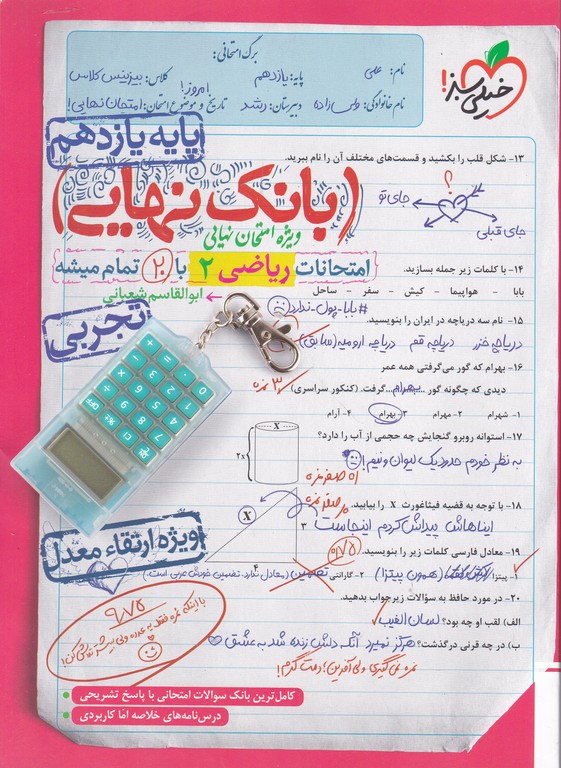 برگ امتحانی:
نام: علی
پایه: یازدهم
کلاس: بیزینس کلاس
نام خانوادگی: ولی زاده
دبیرستان: رشد
امروز!
تاریخ و موضوع امتحان: امتحان نهایی!
خیلی سبز!
پایه یازدهم
۱۳- شکل قلب را بکشید و قسمت‌های مختلف آن را نام ببرید.
؟
جای تو
جای قبلی
(بانک نهایی)
ویژه امتحان نهایی
امتحانات ریاضی ۲ با ۲۰ تمام میشه
ابوالقاسم شعبانی
تجربی
۱۴- با کلمات زیر جمله بسازید.
بابا - هواپیما - کیش - سفر - ساحل
#بابا-پول-ندارد
۱۵- نام سه دریاچه در ایران را بنویسید.
دریاچه خزر دریاچه قم دریاچه ارومیه (سابق)
۱۶- بهرام که گور می‌گرفتی همه عمر
دیدی که چگونه گور ...بهرام... گرفت. (کنکور سراسری)
۱- شهرام ۲- مهرام ۳- بهرام ۴- آرام
۱۷- استوانه روبرو گنجایش چه حجمی از آب را دارد؟
به نظر خودم حدود یک لیوان و نیم!
X
2x
۱۸- با توجه به قضیه فیثاغورث X را بیابید.
ایناهاش پیداش کردم اینجاست
X
۳
۴
۱۹- معادل فارسی کلمات زیر را بنویسید.
۱- پیتزا (همون پیتزا) ۲- گارانتی تضمین (معادل ندارد. تضمین خودش عربی است.)
۲۰- در مورد حافظ به سؤالات زیر جواب بدهید.
الف) لقب او چه بود؟ لسان الغیب
ب) در چه قرنی درگذشت؟ هرگز نمیرد آنکه دلش زنده شد به عشق
نمره نمی‌گیری ولی آفرین! دمت گرم!
ویژه ارتقاء معدل
۹/۷۵
کامل‌ترین بانک سوالات امتحانی با پاسخ تشریحی
درس‌نامه‌های خلاصه اما کاربردی